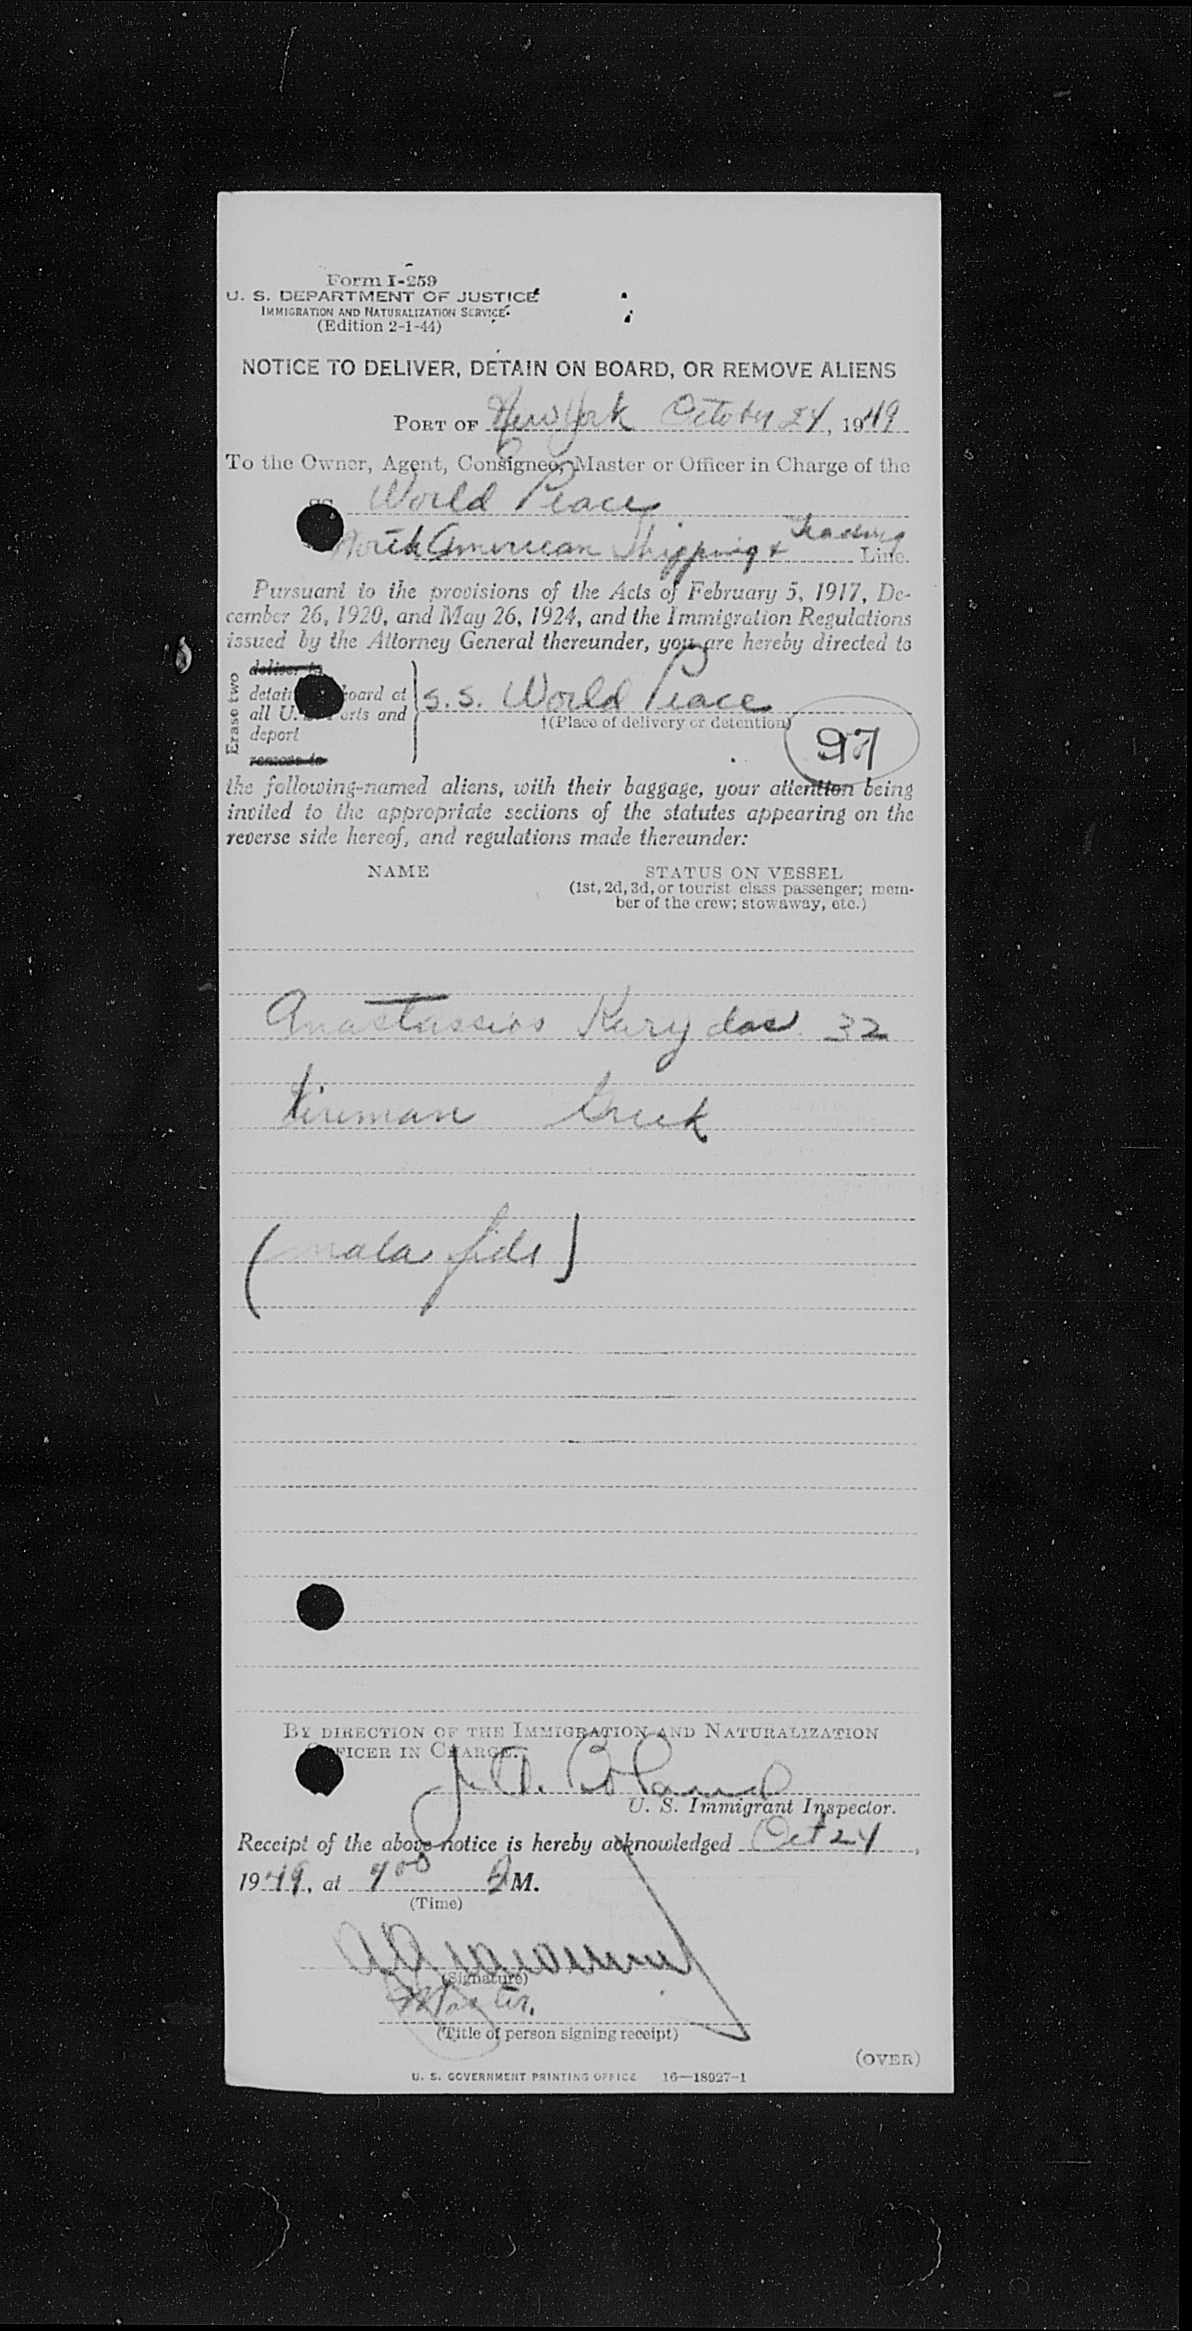 Form I-259
U. S. DEPARTMENT OF JUSTICE
IMMIGRATION AND NATURALIZATION SERVICE
(Edition 2-1-44)
NOTICE TO DELIVER, DETAIN ON BOARD, OR REMOVE ALIENS
PORT OF New York October 24, 1949
To the Owner, Agent, Consignee, Master or Officer in Charge of the
SS World Peace
North American Shipping & Trading Line.
Pursuant to the provisions of the Acts of February 5, 1917, De-
cember 26, 1920, and May 26, 1924, and the Immigration Regulations
issued by the Attorney General thereunder, you are hereby directed to
Erase two
deliver to
detain board at
all U. S. Ports and
deport
remove to
S.S. World Peace
†(Place of delivery or detention)
97
the following-named aliens, with their baggage, your attention being
invited to the appropriate sections of the statutes appearing on the
reverse side hereof, and regulations made thereunder:
NAME STATUS ON VESSEL
(1st, 2d, 3d, or tourist class passenger; mem-
ber of the crew; stowaway, etc.)
Anastassios Karydas 32
Fireman Greek
(mala fide)
BY DIRECTION OF THE IMMIGRATION AND NATURALIZATION
OFFICER IN CHARGE.
J. A. Boland
U. S. Immigrant Inspector.
Receipt of the above notice is hereby acknowledged Oct 24,
1949, at 9 00 M.
(Time)
(Signature)
Master.
(Title of person signing receipt)
(OVER)
U. S. GOVERNMENT PRINTING OFFICE 16—18927-1